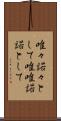 唯々諾々と
して唯唯諾
諾として